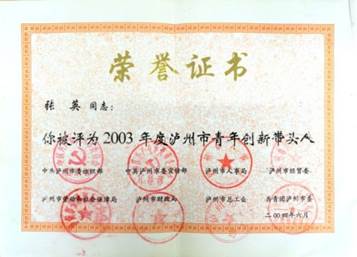 荣誉证书
张英同志:
你被评为2003年度泸州市青年创新带头人
中共泸州市委组织部 中共泸州市委宣传部 泸州市人事局 泸州市经贸委
泸州市劳动和社会保障局 泸州市财政局 泸州市总工会 共青团泸州市委
二00四年六月